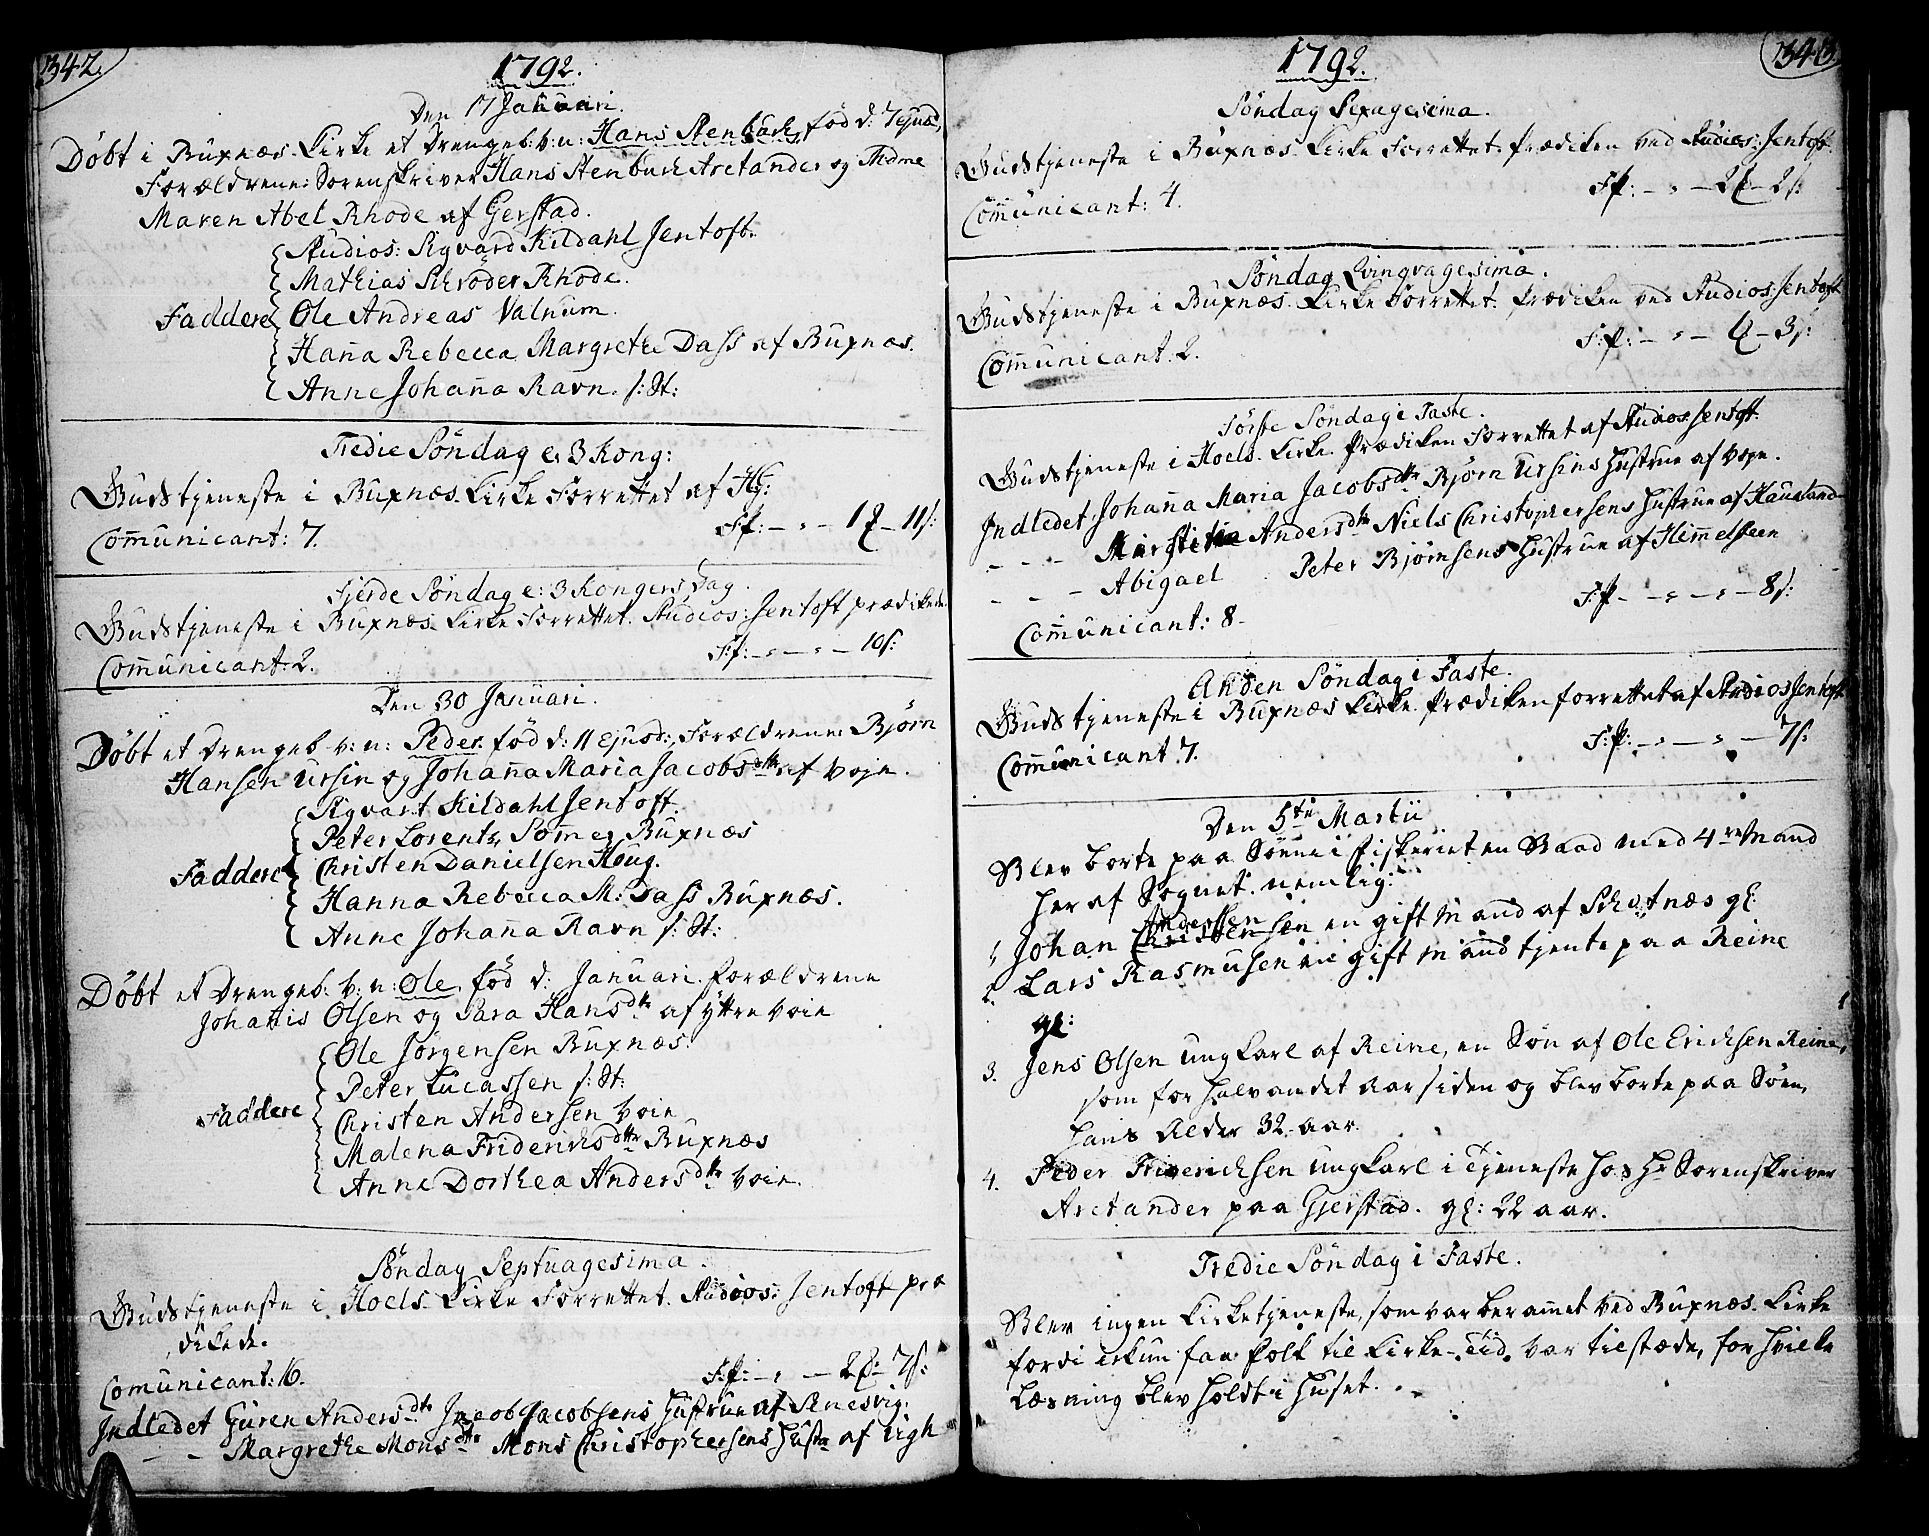 342.
1792.
Den 17 Januari.
Døbt i Buxnæs Kirke et Drengeb: v: n: Hans Stenbuch, fød d: 7 ejusd,
Forældrene: Sorenskriver Hans Stenbuch Arctander og Mdme
Maren Abel Rhode af Gerstad.
Studios: Sigvard Kildahl Jentoft.
Mathias Schrøder Rhode.
Faddere Ole Andreas Valnum.
Hanna Rebecca Margrethe Dass af Buxnæs.
Anne Johanna Ravn. s: St:
Tredie Søndag e. 3 Kong:
Gudstjeneste i Buxnæs Kirke forrettet af Hr:
Comunicant: 7.
Fp: 11 s:
Fjerde Søndag e: 3 Kongers Dag.
Gudstjeneste i Buxnæs Kirke forrettet. Studios: Jentoft prædikede.
Comunicant: 2.
F:p: – " – " – 10 s:
Den 30 Januari.
Døbt et Drengeb. v: n: Peder. fød d: 11 ejusd:, Forældrene Bjørn
Hansen Ursin og Johanna Maria Jacobsdtr af Voje.
Sigvart Kildahl Jentoft.
Peter Lorentz Sommer Buxnæs
Faddere Christen Danielsen Houg.
Hanna Rebecca M: Dass Buxnæs.
Anne Johanna Ravn s: St:
Døbt et Drengeb: v: n: Ole, fød d: Januari. Forældrene
Johannis Olsen og Sara Hansdtr af yttre Voie
Ole Jørgensen Buxnæs.
Peter Lucassen s: St:
Faddere Christen Andersen Voie
Malena Friderichsdtr Buxnæs
Anne Dorthea Andersdtr Voie.
Søndag Septuagesima.
Gudstjeneste i Hoels Kirke forrettet. Studios: Jentoft præ
dikede.
Comunicant: 16.
F:p: 7 s:
Indledet Guren Andersdtr Jacob Jacobsens Hustrue af Penesvig.
– – Margrethe Monsdtr Mons Christophersens Hust. af Ligh
343
1792.
Søndag Sexagesima.
Gudstjeneste i Buxnæs Kirke forrettet. Prædiken ved Studios: Jentoft.
F:p: 2 s:
Comunicant: 4.
Søndag Qvingvagesima.
Gudstjeneste i Buxnæs Kirke forrettet. Prædiken ved Studios Jentoft
F:p: 3 s:
Comunicant: 2.
Første Søndag i Faste.
Gudstjeneste i Hoels Kirke. Prædiken forrettet af Studios: Jentoft.
Indledet Johanna Maria Jacobsdtr Bjørn Ursins Hustrue af Voje.
– – – Andersdtr Niels Christophersens Hustrue af Hauland
– – – Abigael Peter Bjørnsens Hustrue af Himmelsteen
F:p – – " – " – 8 s:
Comunicant: 8.
Anden Søndag i Faste.
Gudstjeneste i Buxnæs Kirke Prædiken forrettet af Studios Jentoft
F:p: – " – " – 7 s:
Comunicant 7.
Den 5te Martii
Blev borte paa Søen i Fiskeriet en Baad med 4re Mand
her af Sognet. nemlig:
Anderssen
1 Johan Christensen en gift Mand af Schotnæs gl:
2. Lars Rasmusen en gift Mand tjente paa Reine
gl:
3. Jens Olsen ungkarl af Reine, en Søn af Ole Erichsen Reine,
som for halvandet Aar siden og blev borte paa Søen,
hans Alder 32 aar.
4. Peder Friderichsen ungkarl i tjeneste hos Hr Sorenskriver
Arctander paa Gjerstad. gl: 22 aar.
Tredie Søndag i Faste.
Blev ingen Kirketjeneste, som var beramet ved Buxnæs Kirke
fordi ikun faa Folk til Kirke-Tid. var tilstæde, for hvilke
Læsning blev holdt i Huset.